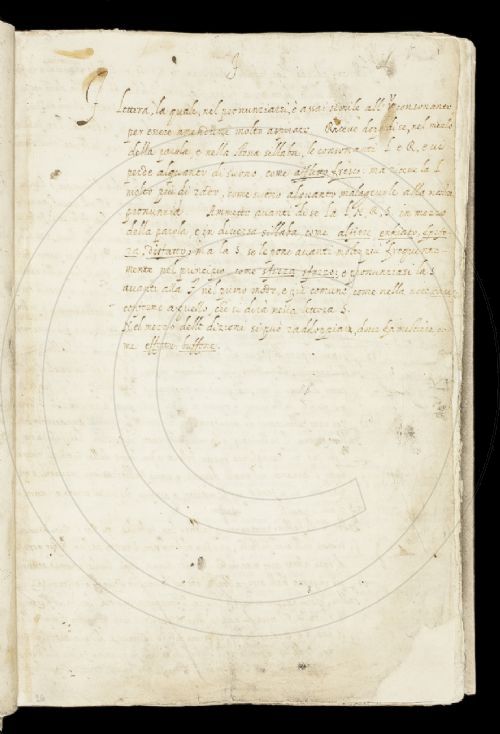 F
F Lettera, la quale, nel pronunziarsi, è assai simile all' V consonante
per essere anch'ella molto
della parola, e nella stessa sillaba, le consonanti L e R, e ui
perde alquanto di suono come afflitto, fresco; ma riceue la L
molto più di rado, come suono alquanto malageuole alla nostra
pronunzia. Ammette auanti di se la L, R, S, in mezzo
della parola, e in diuersa sillaba, come alfiere,
ma la S se le pone auanti molto più frequente
mente nel principio come sforza sforzo; e pronunziasi la S
auanti alla F nel primo modo, e più comune, come nella
costume a quello, che si dirà nella lettera S.
Nel mezzo delle dizioni si può raddoppiare, doue fa mestiere co
me effetti buffone.